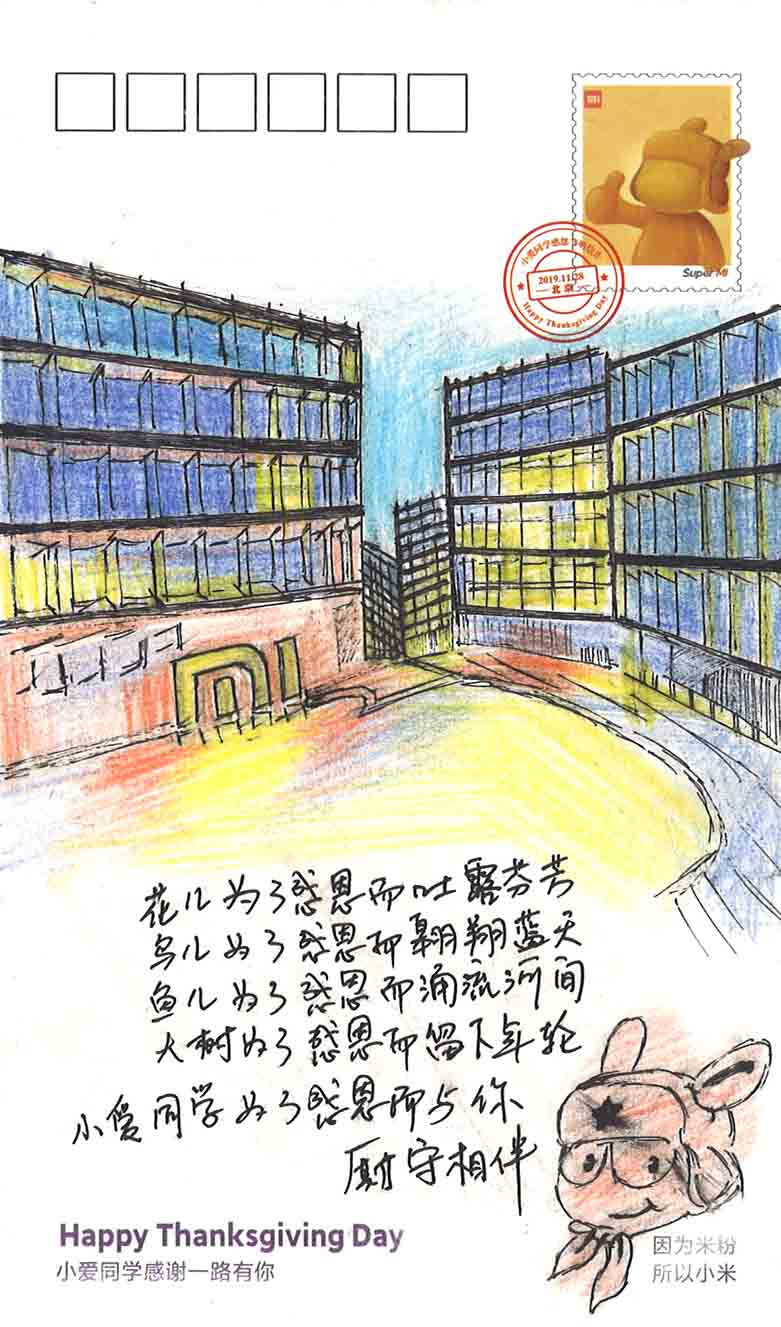 mi
Super MI
小爱同学感恩节明信片
2019.11.28
北京
Happy Thanksgiving Day
MI
花儿为了感恩而吐露芬芳
鸟儿为了感恩而翱翔蓝天
鱼儿为了感恩而涌流河间
大树为了感恩而留下年轮
小爱同学为了感恩而与你
厮守相伴
Happy Thanksgiving Day
小爱同学感谢一路有你
因为米粉
所以小米